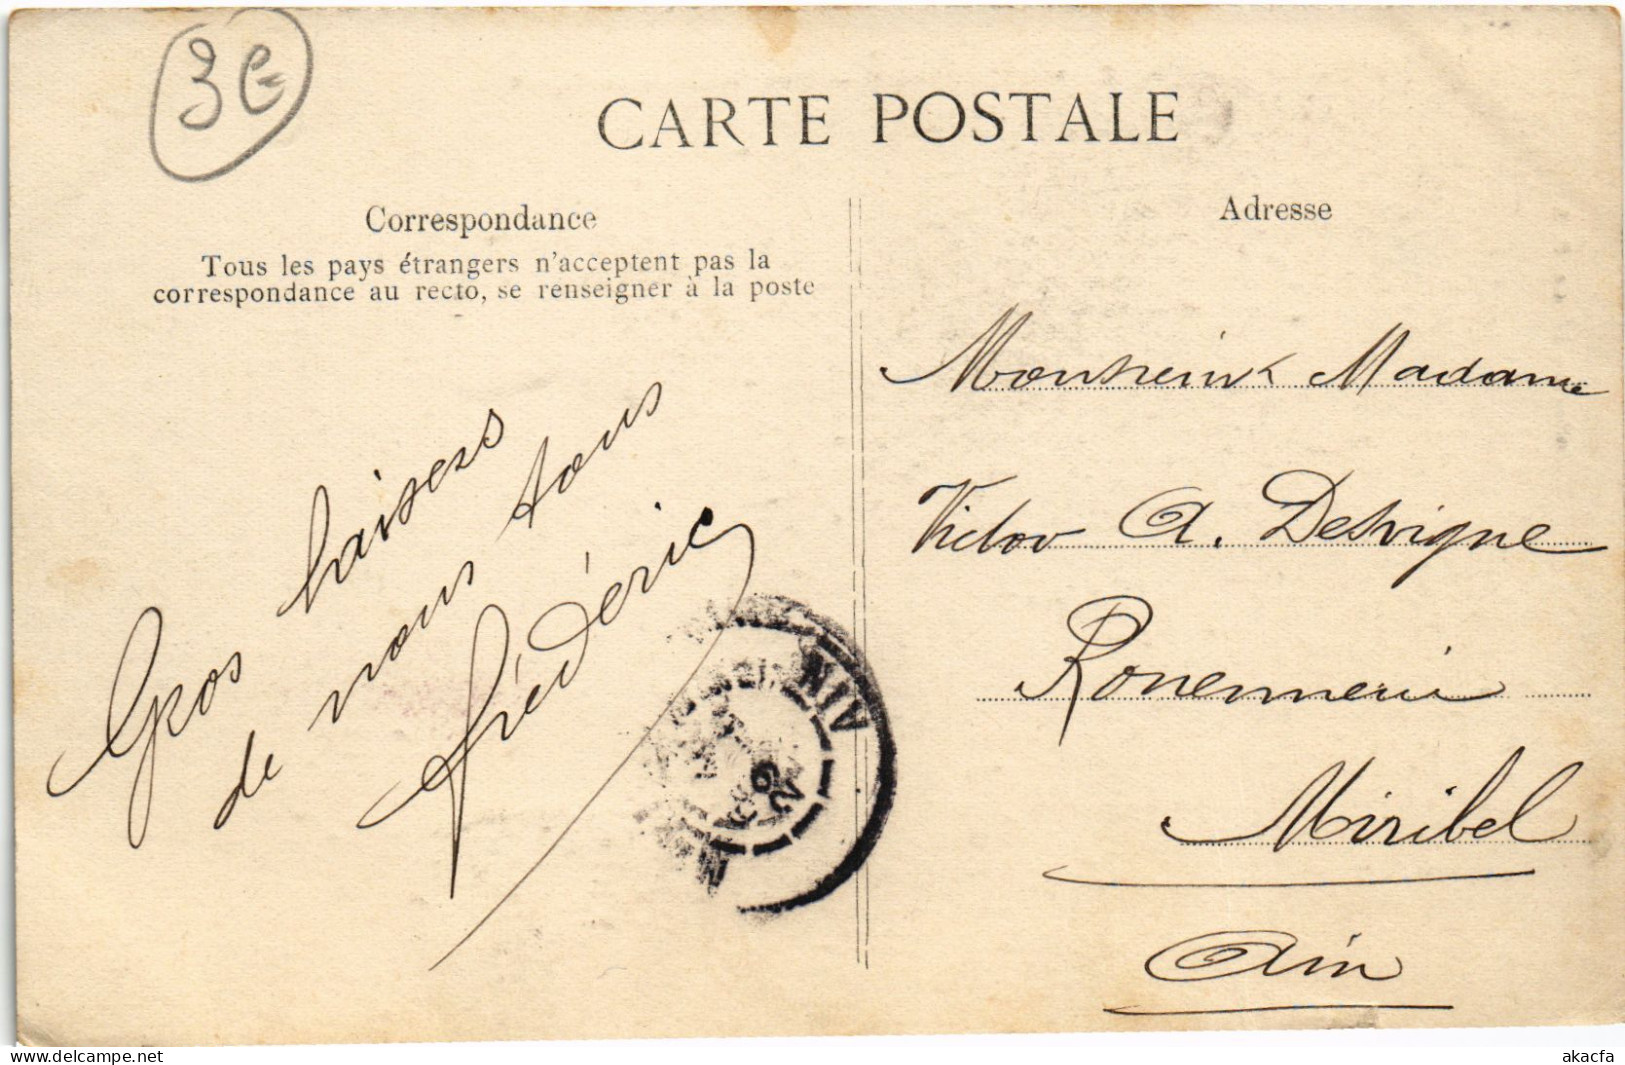 3e
CARTE POSTALE
Correspondance
Tous les pays étrangers n'acceptent pas la
correspondance au recto, se renseigner à la poste
Gros baisers
de nous tous
Frédéric
Adresse
Madame
Victor A. Desvigne
Miribel
Ain
akacfa